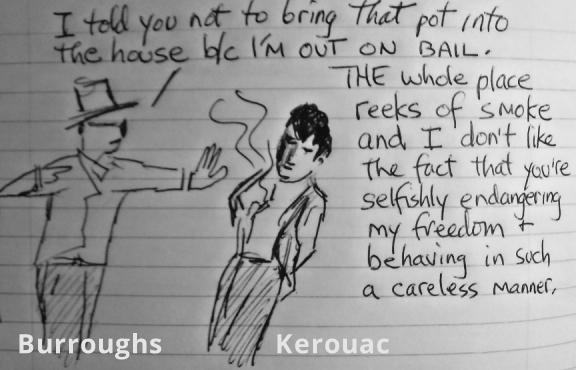 I told you not to bring that pot into
the house b/c I'M OUT ON BAIL.
THE whole place
reeks of smoke
and I don't like
the fact that you're
selfishly endangering
my freedom +
behaving in such
a careless manner.
Burroughs
Kerouac